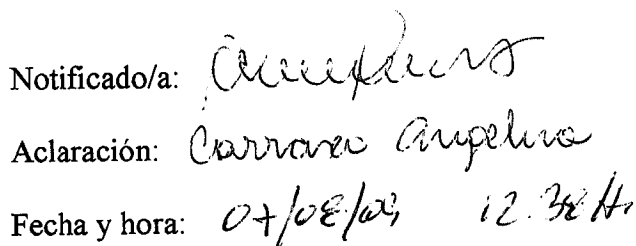 Notificado/a:
Aclaración: Carrasco Angelina
Fecha y hora: 07/08/09 12.38 Hs